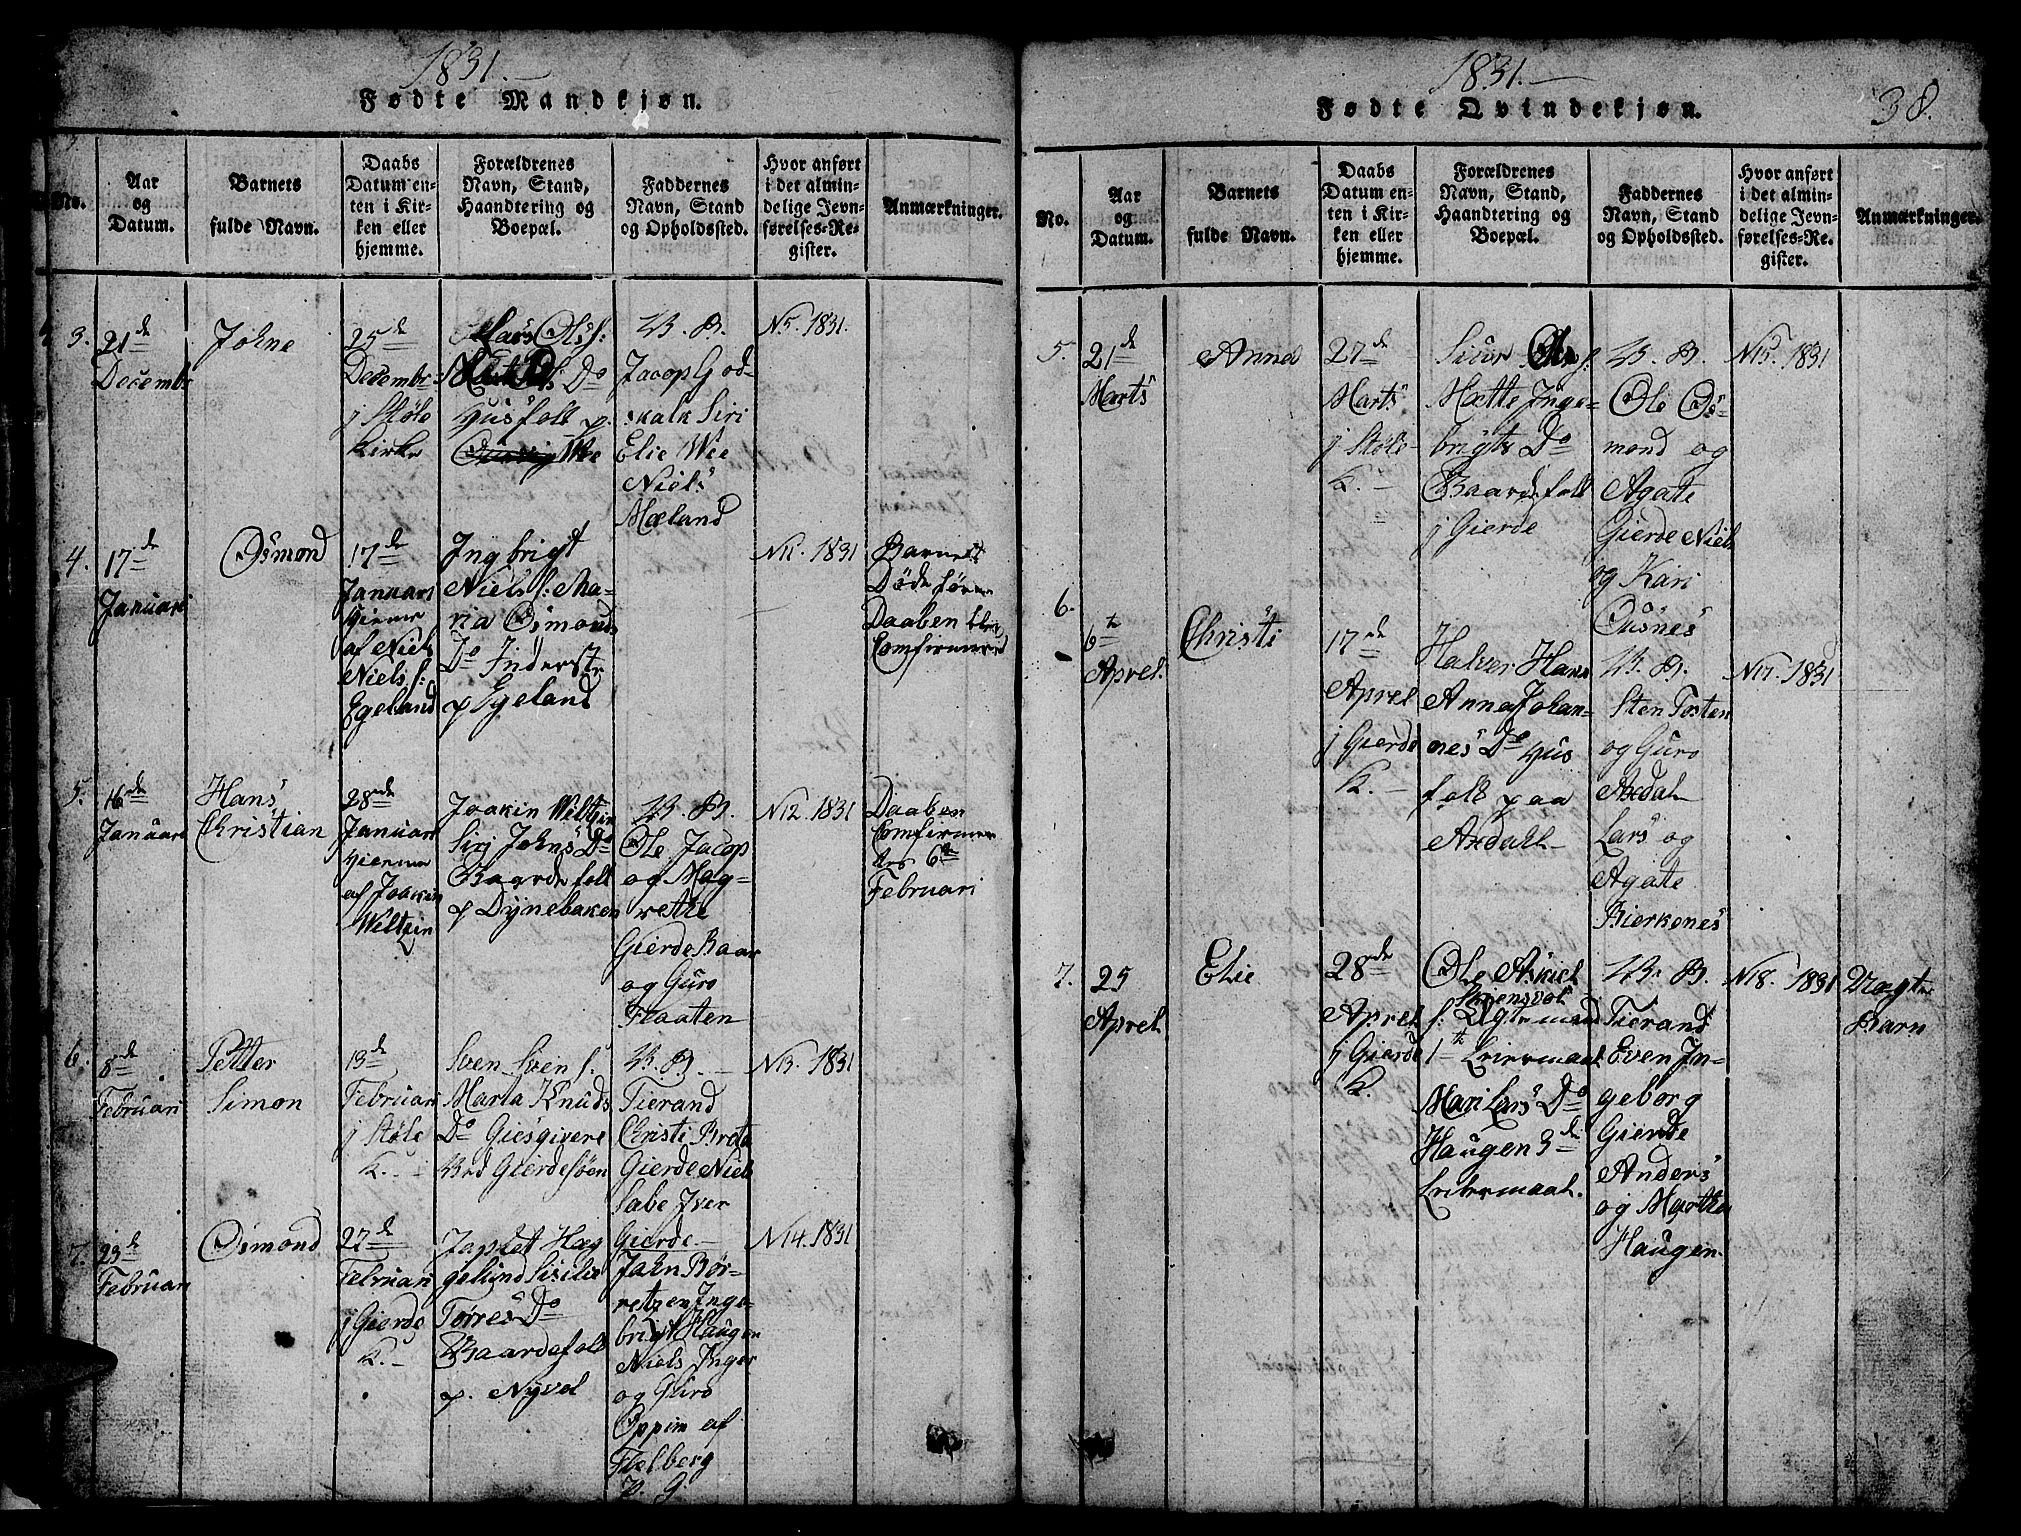 1831.
Fødte Mandkjøn.
No.
Aar
og
Datum.
Barnets
fulde Navn.
Daabs
Datum en-
ten i Kir-
ken eller
hjemme.
Forældrenes
Navn, Stand,
Haandtering og
Boepæl.
Faddernes
Navn, Stand
og Opholdssted.
Hvor anført
i det almin-
delige Jevn-
førelses-Re-
gister.
Anmærkninger.
3.
21de
Decembr
Johne
25de
Decembr
j Støle
Kirke
Lars Ols f:
Do
Husfolk p.
Wee
W. B.
Jacop God-
skalk Siri
Elie Wee
Niels
Mæland
N5. 1831.
4.
17de
Januari
Osmond
17de
Januari
Hieme
af Niels
Niels f:
Egeland
Ingbrigt
Niels f: Ma-
ria Osmonds
Do Inderste
p Egeland
N11. 1831
Barnet
Døde føren
Daaben blev
Comfirmered
5.
16de
Januari
Hans
Christian
28de
Januari
Hieme
af Joakin
Weltzin
Joakin Weltzin
Siri Johns Do
Baardefolk
p Dynebaken
W. B.
Ole Jacop
og Mag-
rette
Gierde Baar
og Guro
Flaaten
N12. 1831
Daaben
Comfirme
6te
Februari
6.
8de
Februari
Petter
Simon
13de
Februari
j Støle
K.
Sven Sven f:
Marta Knuds
Do Giesgivere
Ved Gierdesøen
W. B.
Tierand
Christi Brota
Gierde Niels
Sabe Iver
Gierde
N13. 1831
7.
23de
Februari
Osmond
27de
Februari
j Gierde
K.
Japhet Hæg
gelund Sisilie
Tørres Do
Baardefolk
p. Nyvol
Jahn Bør-
retzen Inge-
brigt Haugen
Niels Inger
og Guro
Oppim af
Fielberg
P. G.
N14. 1831
1831.
Fødte Qvindekjøn.
38.
No.
Aar
og
Datum.
Barnets
fulde Navn.
Daabs
Datum en-
ten i Kir-
ken eller
hjemme.
Forældrenes
Navn, Stand,
Haandtering og
Boepæl.
Faddernes
Navn, Stand
og Opholdssted.
Hvor anført
i det almin-
delige Jevn-
førelses-Re-
gister.
Anmærkninger.
5.
21de
Marts
Anna
27de
Marts
j Støle
K.
Siver
Mætte Inge-
brigts Do
Baardefolk
j Gierde
W. B.
Ole Os-
mond og
Agate
Gierde Niels
og Kari
Ousnes
N15. 1831
6.
6te
Aprel.
Christi
17de
Aprel
j Gierde
K.
Halver Hans
Anna Johan-
nes Do Hus
folk paa
Axdahl
W. B.
Sten Tosten
og Guro
Axdal
Lars og
Agate
Bierkenes
N17. 1831
7.
25
Aprel.
Elie
28de
Aprel
j Gierde
K.
Ole Askiel
f:
1te Leiermaal
Mari Lars Do
Haugen 3de
Leiermaal.
W. B.
Tierand
Even In-
geborg
Gierde
Anders
og Martha
Haugen
N18. 1831
Uægte
Barn